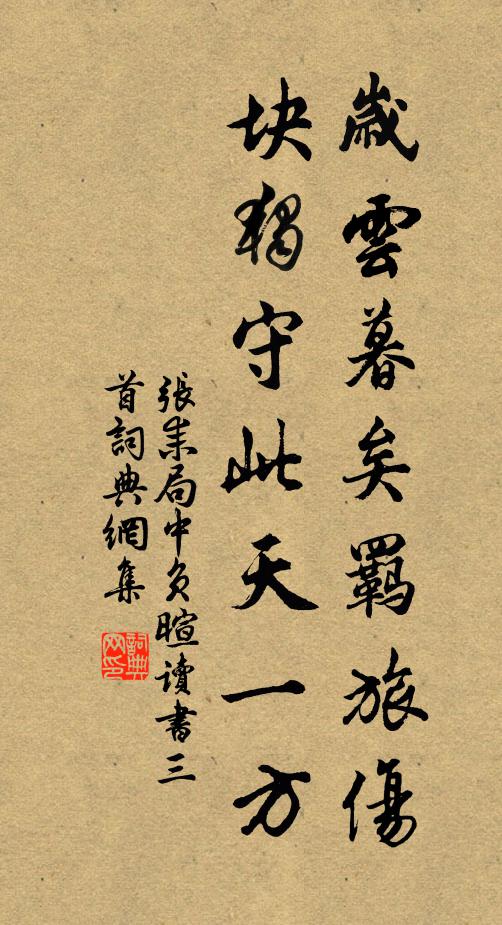 歲雲暮矣羇旅傷
塊獨守此天一方
張耒局中負暄讀書三
首詞典網集
詞典网印